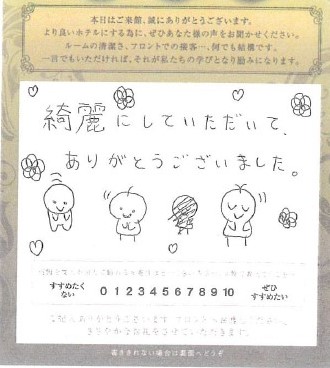 本日はご来館、誠にありがとうございます。
より良いホテルにする為に、ぜひあなた様の声をお聞かせください。
ルームの清潔さ、フロントでの接客…、何でも結構です。
一言でもいただければ、それが私たちの学びとなり励みになります。
綺麗にしていただいて、
ありがとうございました。
すすめたく
ない
0 1 2 3 4 5 6 7 8 9 10
ぜひ
すすめたい
書ききれない場合は裏面へどうぞ